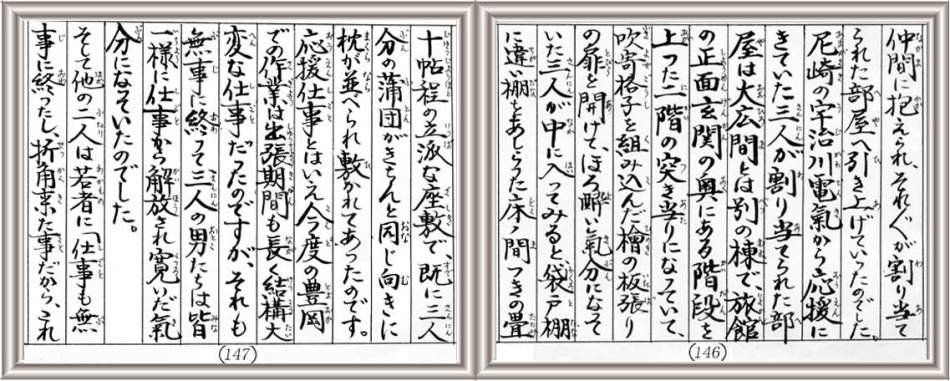 仲間に抱えられ、それ〴〵が割り当て
られた部屋へ引き上げていったのでした。
尼崎の宇治川電氣から応援に
きていた三人が割り当てられた部
屋は大広間とは別の棟で、旅館
の正面玄関の奥にある階段を
上った二階の突き当りになっていて、
吹寄格子を組み込んだ檜の板張り
の扉を開けて、ほろ酔い氣分になって
いた三人が中に入ってみると、袋戸棚
に違い棚もあしらった床ノ間つきの畳
(146)
十帖程の立派な座敷で、既に三人
分の蒲団がきちんと同じ向きに
枕が並べられ敷かれてあったのです。
応援仕事とはいえ今度の豊岡
での作業は出張期間も長く結構大
変な仕事だったのですが、それも
無事に終って三人の男たちは皆
一様に仕事から解放され寛いだ氣
分になっていたのでした。
そして他の二人は若者に「仕事も無
事に終ったし、折角来た事だから、これ
(147)